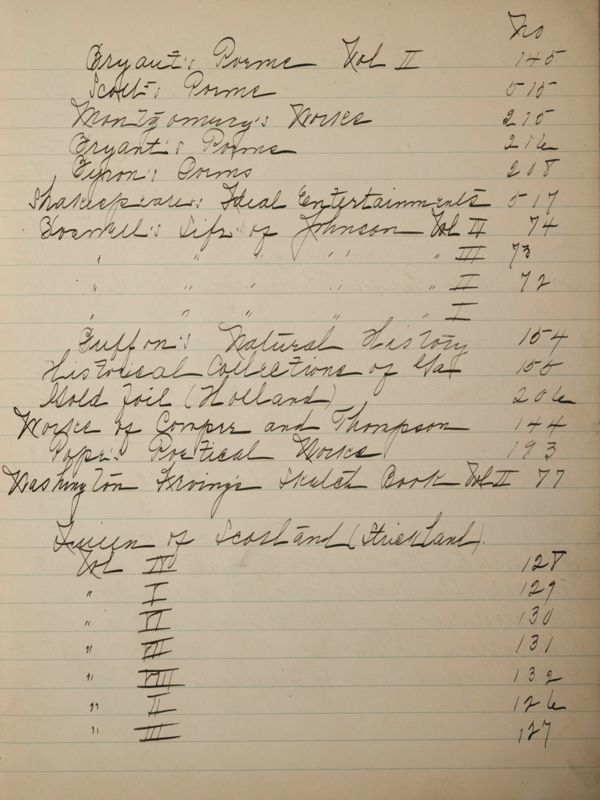 No
Bryant's Poems Vol II 145
Scott's Poems 515
Montgomery's Works 215
Bryant's Poems 216
Byron's Poems 208
Shakespeare's Ideal Entertainments 517
Boswell's Life of Johnson Vol IV 74
" " " " " " III 73
" " " " " II 72
" " " " " I
Buffon's Natural History 154
Historical Collections of Ga 155
Gold Foil (Holland) 206
Works of Cowper and Thompson 144
Pope's Poetical Works 193
Washington Irvings Sketch Book Vol II 77
Queen of Scotland (Strickland).
Vol IV 128
" I 129
" VI 130
" VII 131
" VIII 132
" II 126
" III 127